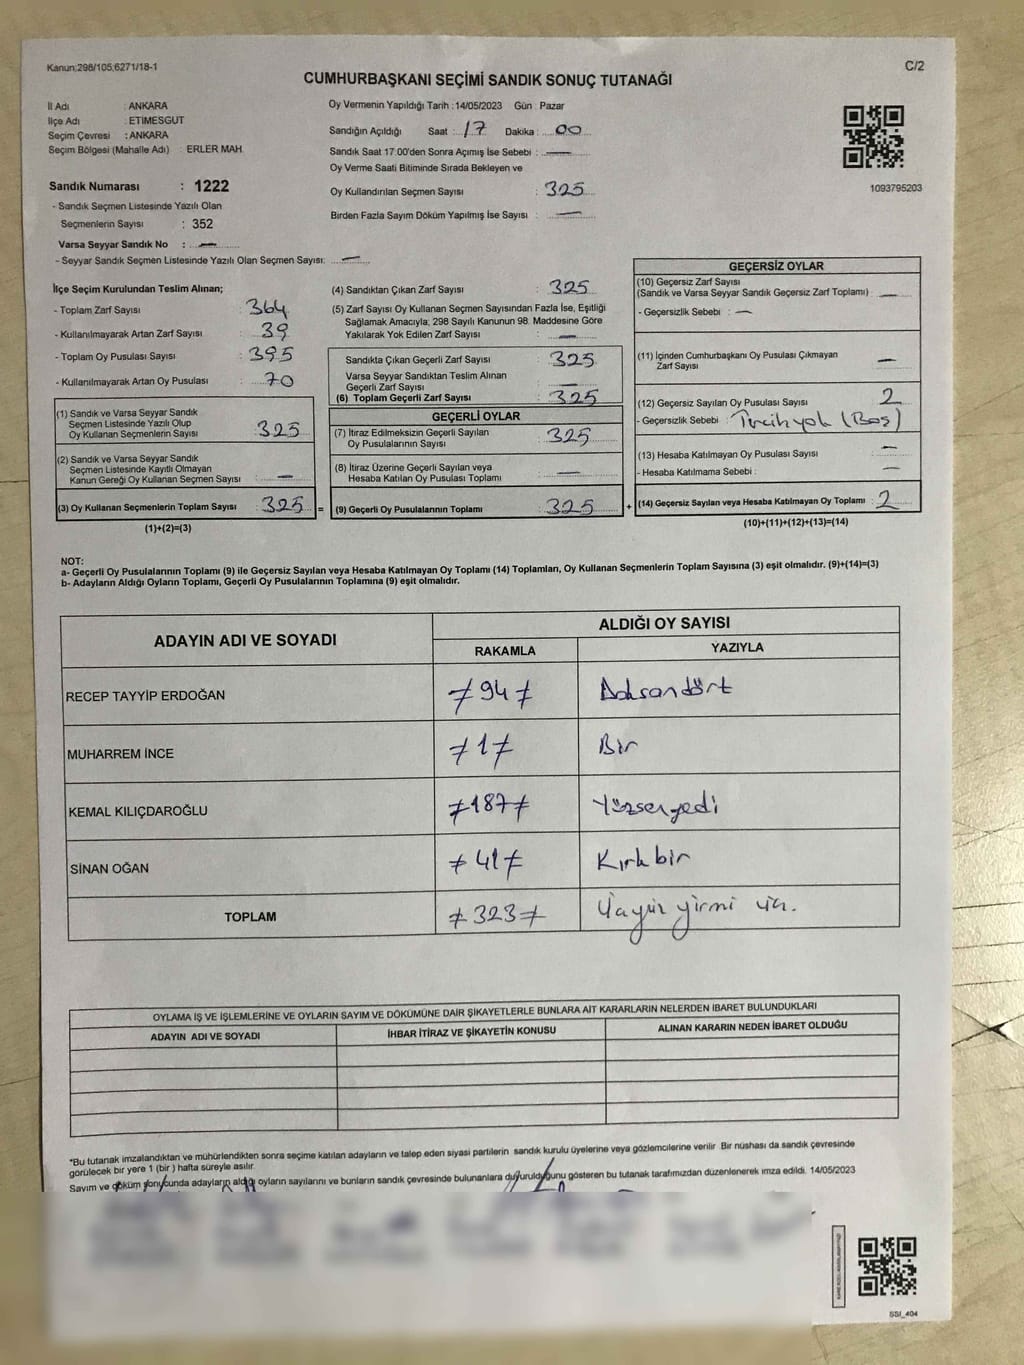 Kanun;298/105,6271/18-1
C/2
CUMHURBAŞKANI SEÇİMİ SANDIK SONUÇ TUTANAĞI
İl Adı : ANKARA
İlçe Adı : ETİMESGUT
Seçim Çevresi : ANKARA
Seçim Bölgesi (Mahalle Adı) : ERLER MAH.
Sandık Numarası : 1222
- Sandık Seçmen Listesinde Yazılı Olan
Seçmenlerin Sayısı : 352
Varsa Seyyar Sandık No : —
- Seyyar Sandık Seçmen Listesinde Yazılı Olan Seçmen Sayısı: —
Oy Vermenin Yapıldığı Tarih : 14/05/2023 Gün : Pazar
Sandığın Açıldığı Saat : 17 Dakika : 00
Sandık Saat 17:00'den Sonra Açımış İse Sebebi : —
Oy Verme Saati Bitiminde Sırada Bekleyen ve
Oy Kullandırılan Seçmen Sayısı : 325
Birden Fazla Sayım Döküm Yapılmış İse Sayısı : —
1093795203
İlçe Seçim Kurulundan Teslim Alınan;
- Toplam Zarf Sayısı : 364
- Kullanılmayarak Artan Zarf Sayısı : 39
- Toplam Oy Pusulası Sayısı : 395
- Kullanılmayarak Artan Oy Pusulası : 70
(1) Sandık ve Varsa Seyyar Sandık
Seçmen Listesinde Yazılı Olup
Oy Kullanan Seçmenlerin Sayısı : 325
(2) Sandık ve Varsa Seyyar Sandık
Seçmen Listesinde Kayıtlı Olmayan
Kanun Gereği Oy Kullanan Seçmen Sayısı : —
(3) Oy Kullanan Seçmenlerin Toplam Sayısı : 325 =
(1)+(2)=(3)
(4) Sandıktan Çıkan Zarf Sayısı : 325
(5) Zarf Sayısı Oy Kullanan Seçmen Sayısından Fazla İse, Eşitliği
Sağlamak Amacıyla; 298 Sayılı Kanunun 98. Maddesine Göre
Yakılarak Yok Edilen Zarf Sayısı : —
Sandıkta Çıkan Geçerli Zarf Sayısı : 325
Varsa Seyyar Sandıktan Teslim Alınan
Geçerli Zarf Sayısı : —
(6) Toplam Geçerli Zarf Sayısı : 325
GEÇERLİ OYLAR
(7) İtiraz Edilmeksizin Geçerli Sayılan
Oy Pusulalarının Sayısı : 325
(8) İtiraz Üzerine Geçerli Sayılan veya
Hesaba Katılan Oy Pusulası Toplamı : —
(9) Geçerli Oy Pusulalarının Toplamı : 325 +
GEÇERSİZ OYLAR
(10) Geçersiz Zarf Sayısı
(Sandık ve Varsa Seyyar Sandık Geçersiz Zarf Toplamı) : —
- Geçersizlik Sebebi : —
(11) İçinden Cumhurbaşkanı Oy Pusulası Çıkmayan
Zarf Sayısı : —
(12) Geçersiz Sayılan Oy Pusulası Sayısı : 2
- Geçersizlik Sebebi : Tercih yok (Boş)
(13) Hesaba Katılmayan Oy Pusulası Sayısı : —
- Hesaba Katılmama Sebebi : —
(14) Geçersiz Sayılan veya Hesaba Katılmayan Oy Toplamı : 2
(10)+(11)+(12)+(13)=(14)
NOT:
a- Geçerli Oy Pusulalarının Toplamı (9) ile Geçersiz Sayılan veya Hesaba Katılmayan Oy Toplamı (14) Toplamları, Oy Kullanan Seçmenlerin Toplam Sayısına (3) eşit olmalıdır. (9)+(14)=(3)
b- Adayların Aldığı Oyların Toplamı, Geçerli Oy Pusulalarının Toplamına (9) eşit olmalıdır.
ADAYIN ADI VE SOYADI
ALDIĞI OY SAYISI
RAKAMLA YAZIYLA
RECEP TAYYİP ERDOĞAN ≠94≠ Doksandört
MUHARREM İNCE ≠1≠ Bir
KEMAL KILIÇDAROĞLU ≠187≠ Yüzseryedi
SİNAN OĞAN ≠41≠ Kırkbir
TOPLAM ≠323≠ Üçyüz yirmi üç.
OYLAMA İŞ VE İŞLEMLERİNE VE OYLARIN SAYIM VE DÖKÜMÜNE DAİR ŞİKAYETLERLE BUNLARA AİT KARARLARIN NELERDEN İBARET BULUNDUKLARI
ADAYIN ADI VE SOYADI İHBAR İTİRAZ VE ŞİKAYETİN KONUSU ALINAN KARARIN NEDEN İBARET OLDUĞU
*Bu tutanak imzalandıktan ve mühürlendikten sonra seçime katılan adayların ve talep eden siyasi partilerin sandık kurulu üyelerine veya gözlemcilerine verilir Bir nüshası da sandık çevresinde
görülecek bir yere 1 (bir ) hafta süreyle asılır.
Sayım ve döküm sonucunda adayların aldığı oyların sayılarını ve bunların sandık çevresinde bulunanlara duyurulduğunu gösteren bu tutanak tarafımızdan düzenlenerek imza edildi. 14/05/2023
SSI_404